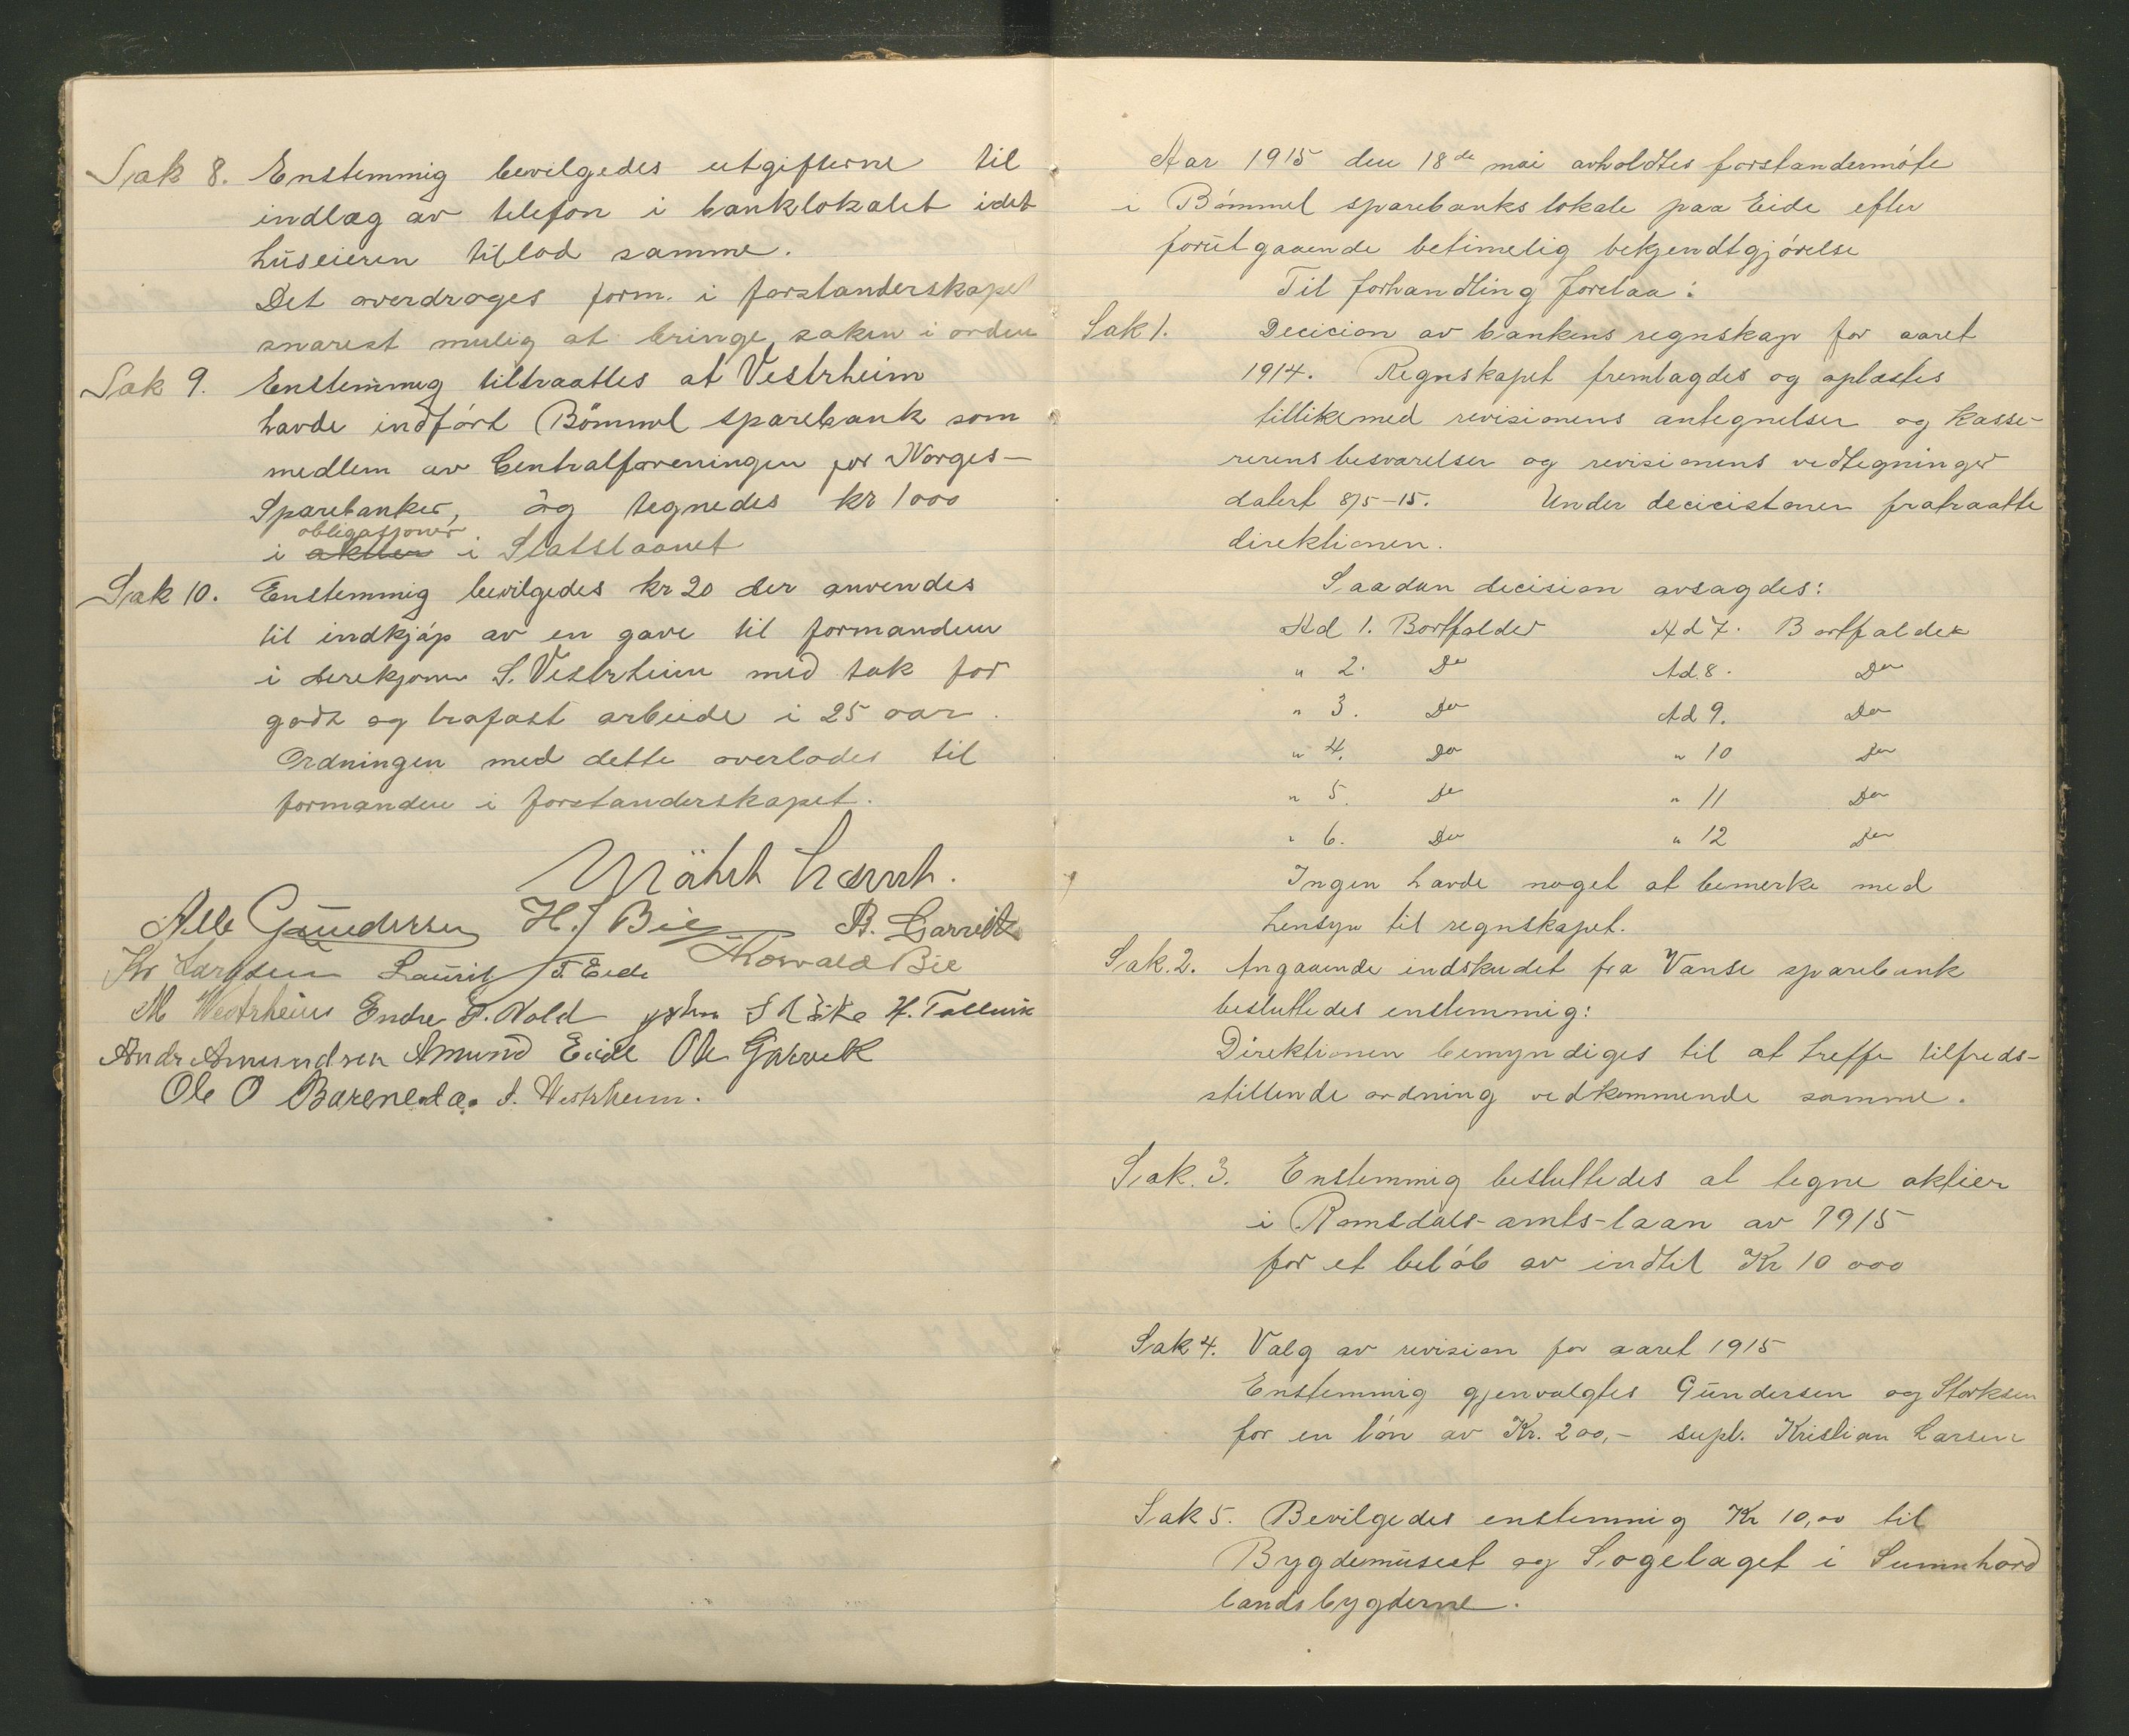 Sak 8. Enstemmig bevilgedes utgifterne til
indlæg av telefon i banklokalet idet
huseieren tillod samme.
Det overdroges form. i forstanderskapet
snarest mulig at bringe saken i orden
Sak 9. Enstemmig tiltraattes at Vestrheim
havde indført Bömmel sparebank som
medlem av Centralforeningen for Norges-
Sparebanker, og tegnedes kr 1000
obligasjoner
i aktier i Statslaanet
Sak 10. Enstemmig bevilgedes kr 20 der anvendes
til indkjøp av en gave til formanden
i direksjonen S. Vestrheim med tak for
godt og trofast arbeide i 25 aar.
Ordningen med dette overlodes til
formanden i forstanderskapet.
Gundersen H. J Bie B.
Laurits T. Eide Thorvald Bie
M Westrheim Endre T. Vold John H. Tollevik
Andr Amundsen Amund Eide Ole GaRvik
Ole O Barane S. Westrheim.
Aar 1915 den 18de mai avholdtes forstandermøte
i Bømmel sparebanks lokale paa Eide efter
forutgaaende betimelig bekjendtgjørelse
Til forhandling forelaa:
Sak 1. Decicion av bankens regnskap for aaret
1914. Regnskapet fremlagdes og oplæstes
tillikemed revisionens antegnelser og kasse-
rerens besvarelser og revisionens vedtegninger
datert 8/5-15. Under decicistonen fratraatte
direktionen.
Saadan decision avsagdes:
Ad 1. Bortfalder Ad 7. Bortfalder
" 2. Do Ad. 8. Do
" 3. Do Ad 9. Do
" 4. Do " 10 Do
" 5. Do " 11 Do
" 6. Do " 12 Do
Ingen havde noget at bemerke med
hensyn til regnskapet.
Sak. 2. Angaaende indskudet fra Vanse sparebank
besluttedes enstemmig:
Direktionen bemyndiges til at treffe tilfreds-
stillende ordning vedkommende samme.
Sak. 3. Enstemmig besluttedes at tegne aktier
i Romsdals-amts-laan av 1915
for et beløb av indtil Kr 10 000
Sak 4. Valg av revision for aaret 1915
Enstemmig gjenvalgtes Gundersen og Storksen
for en løn av Kr. 200,- supl. Kristian Larsen
Sak 5. Bevilgedes enstemmig Kr 10,00 til
Bygdemuseet og Sogelaget i Sunnhord
landsbygderne.